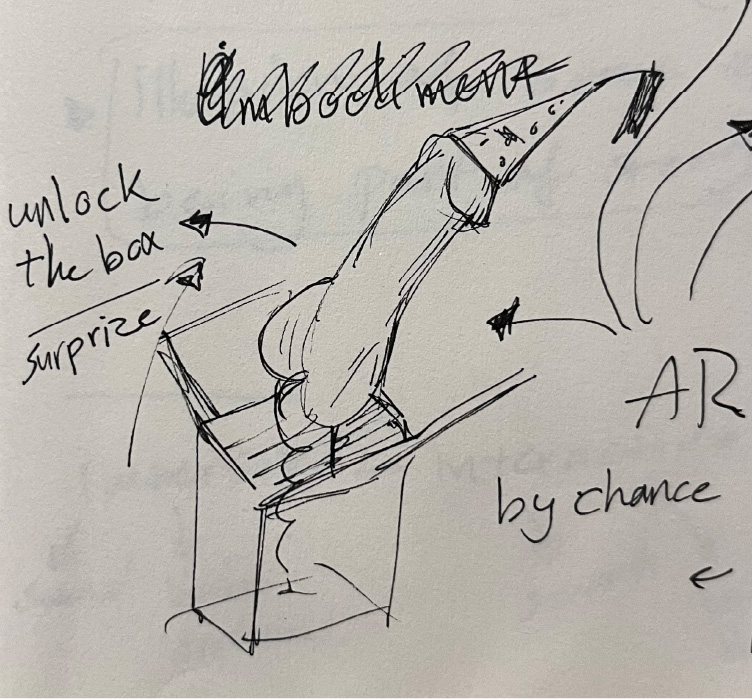 Embodiment
unlock
the box
surprize
AR
by chance